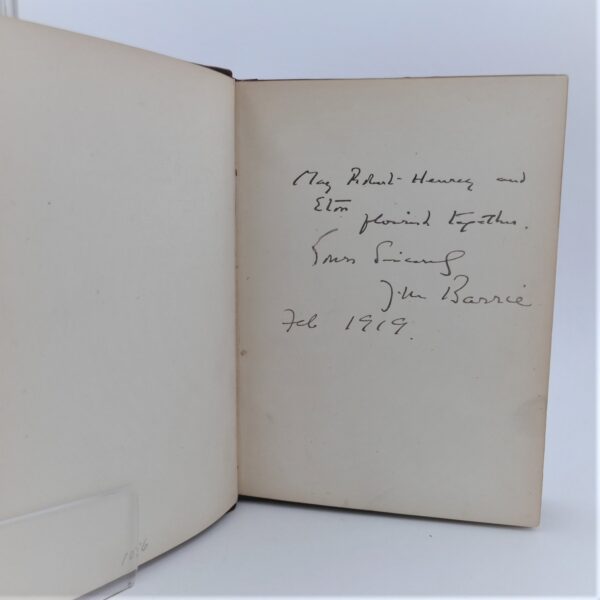 May Robert-Henrey and
Eton flourish together.
Yours Sincerely
J.M Barrie
Feb 1919.